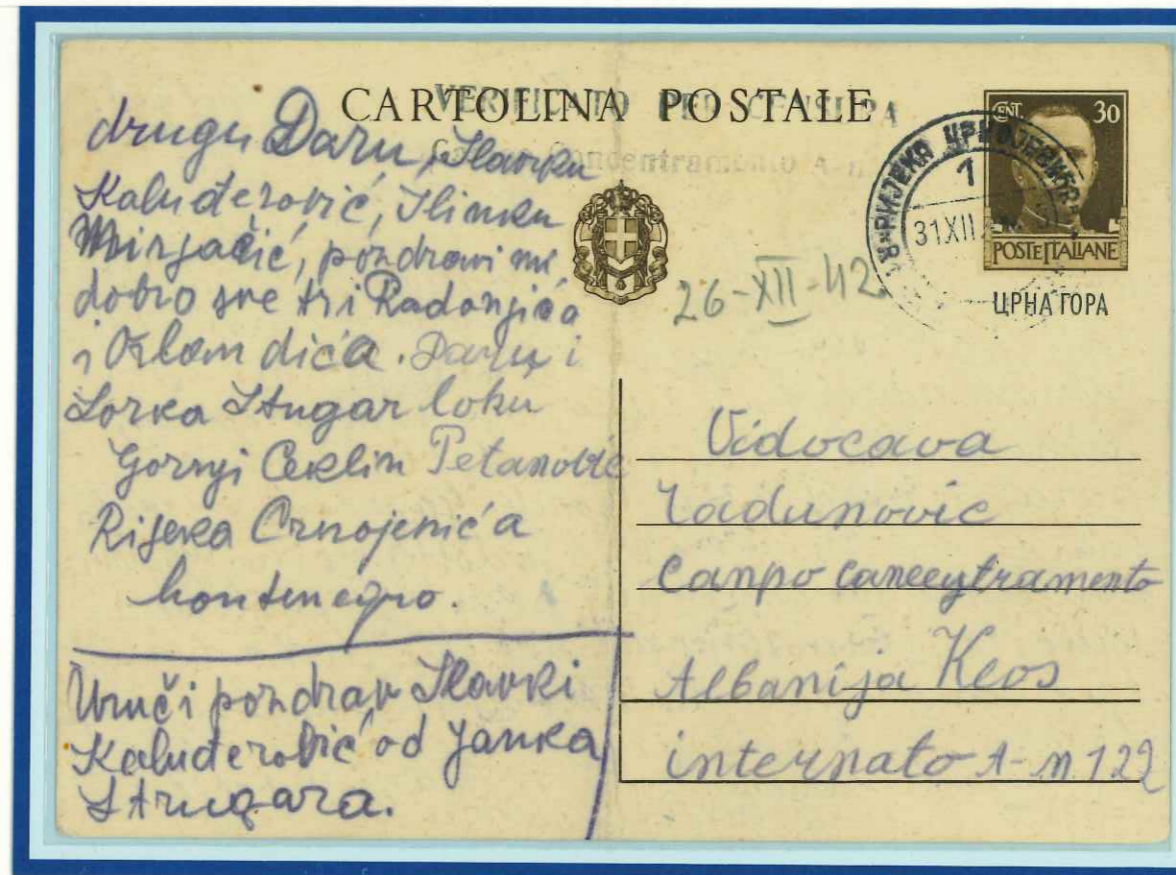 CARTOLINA POSTALE
VERIFICATO PER CENSURA
Concentramento A-n
CENT. 30
POSTE ITALIANE
ЦРНА ГОРА
РИЈЕКА ЦРНОЈЕВИЋА
1
31 XII
26-XII-42
drugu Daru, Slavku
Kaluđerović, Ilinku
pozdravi mi
dobro sve tri Radonjića
i dića. Daru i
Zorka Stugar loku
Gornji Ceklin Petanović
Rijeka Crnojenića
Montenegro.
Uruči pozdrav Slavki
Kaluđerobić od Janka
Strugara.
Vidocava
Radunovic
Canpo canceytramento
Albanija Keos
internato A-n 122